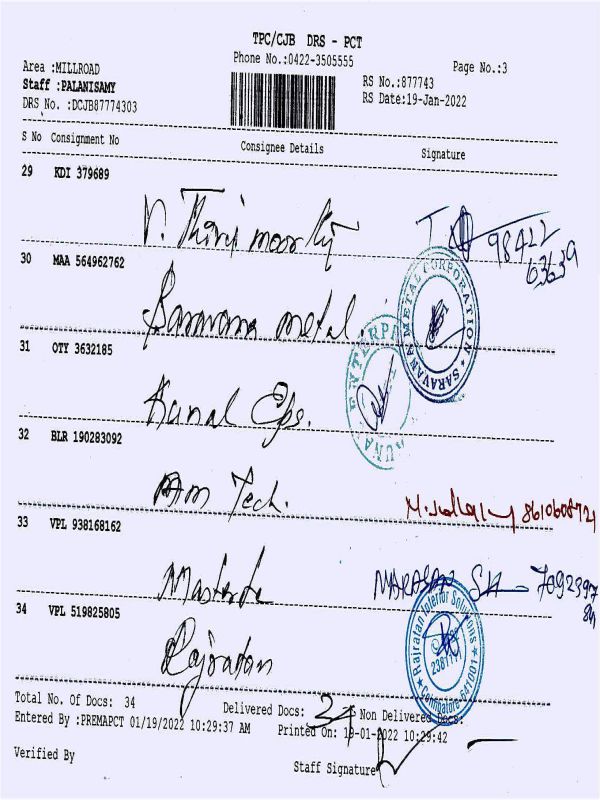 TPC/CJB DRS - PCT
Phone No.:0422-3505555
Page No.:3
Area :MILLROAD
Staff :PALANISAMY
DRS No. :DCJB87774303
RS No.:877743
RS Date:19-Jan-2022
S No Consignment No Consignee Details Signature
29 KDI 379689
V. Thirumoorthy
98422
63639
30 MAA 564962762
Saravana metal.
SARAVANA METAL CORPORATION
31 OTY 3632185
Kunal Eps.
ENTERPR
32 BLR 190283092
Am Tech.
8610608721
33 VPL 938168162
NARAYAN
7092397
34 VPL 519825805
Rajratan
Rajratan Interior Solutions
Coimbatore-641001
Total No. Of Docs: 34 Delivered Docs: 34 Non Delivered Docs:
Entered By :PREMAPCT 01/19/2022 10:29:37 AM Printed On: 19-01-2022 10:29:42
Verified By
Staff Signature